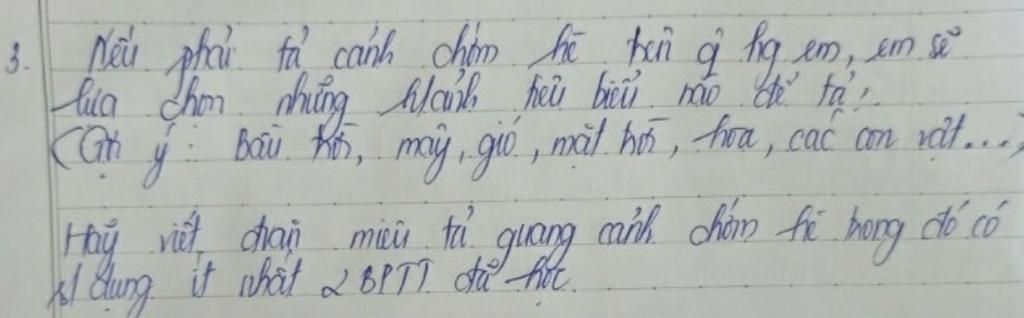 3. Nếu phải tả cảnh chớm hè trên q hg em, em sẽ
lựa chọn những h/ảnh tiêu biểu nào để tả?
(Gợi ý: Bầu trời, mây, gió, mặt trời, hoa, các con vật...)
Hãy viết đoạn miêu tả quang cảnh chớm hè trong đó có
s/dụng ít nhất 2 BPTT đã học.